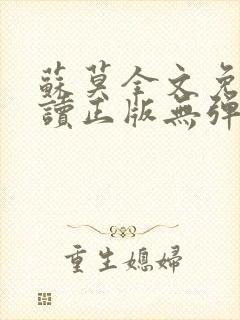 蘇莫全文免
讀正版無彈
重生媳婦